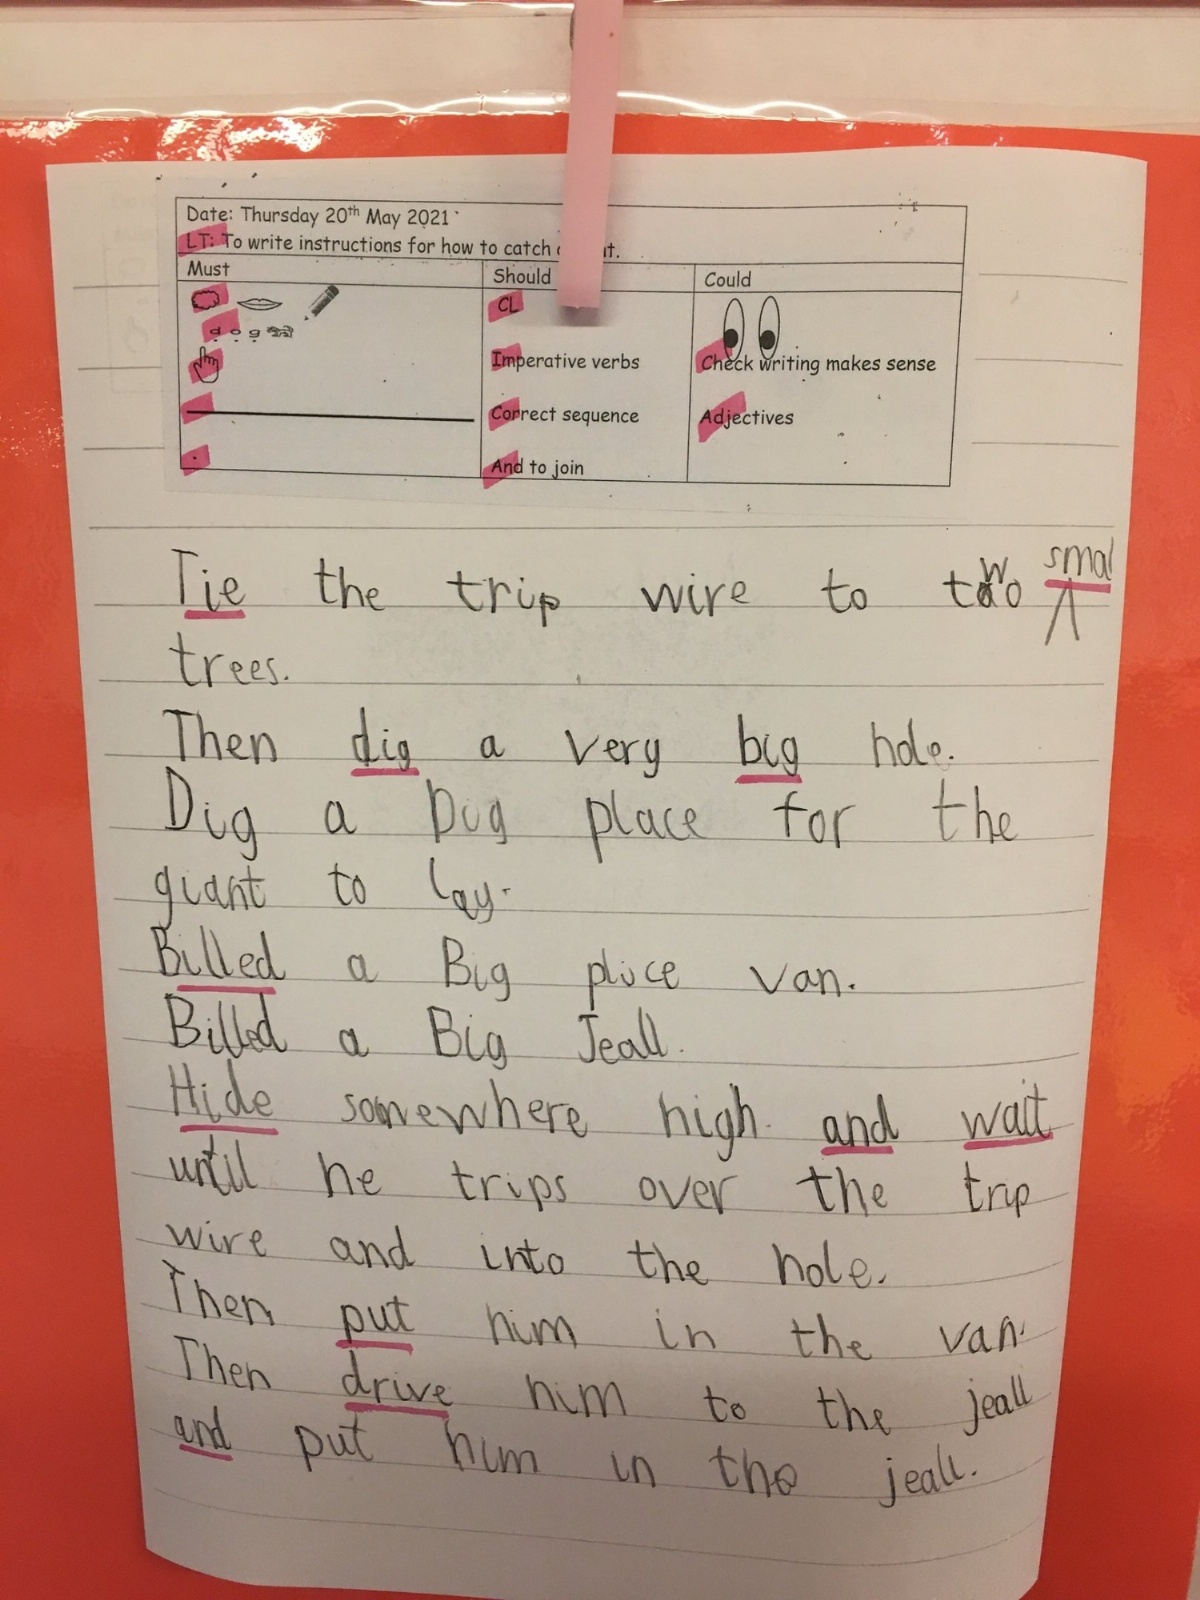 Date: Thursday 20th May 2021
LT: To write instructions for how to catch
Must Should Could
CL
Imperative verbs Check writing makes sense
Correct sequence Adjectives
And to join
smal
Tie the trip wire to two
trees.
Then dig a very big hole.
Dig a Dug place for the
giant to lay.
Billed a Big pluce van.
Billed a Big Jeall.
Hide somewhere high and wait
until he trips over the trip
wire and into the hole.
Then put him in the van.
Then drive him to the jeall
and put him in the jeall.